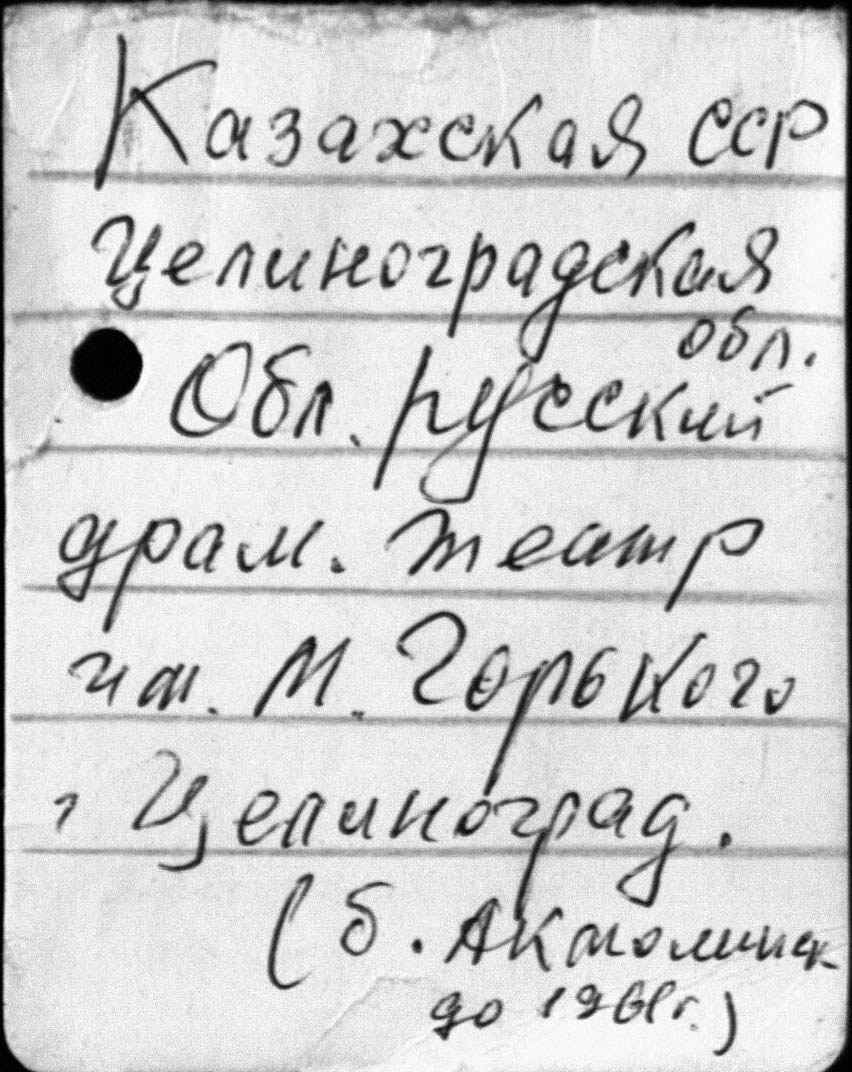 Казахская ССР
Целиноградская
обл.
Обл. русский
драм. театр
им. М. Горького
г Целиноград.
(б. Акмолинск
до 1961г.)